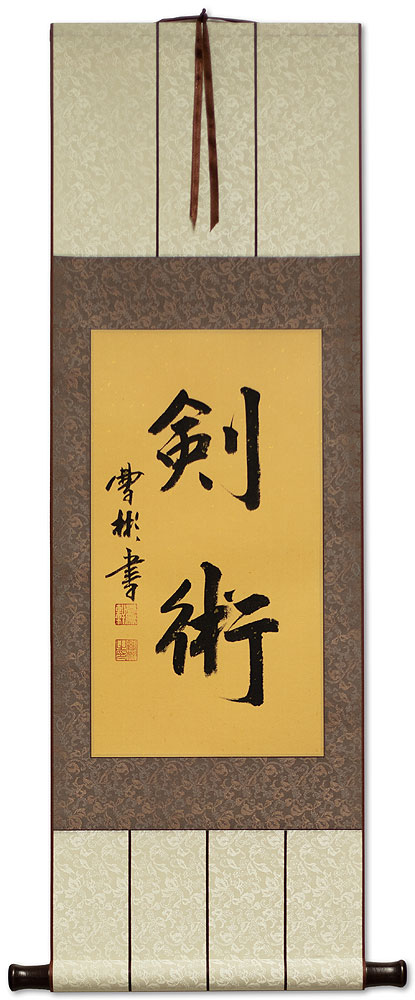 剣術
曹彬書